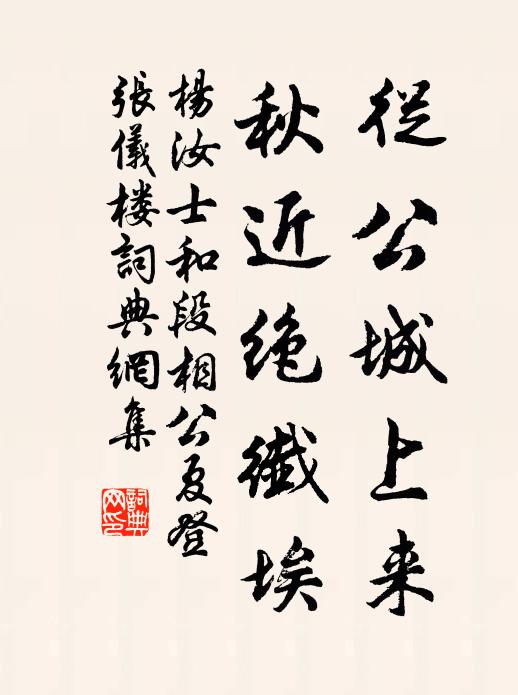 從公城上来
秋近絶纖埃
楊汝士和段相公夏登
張儀楼詞典網集
詞典网印